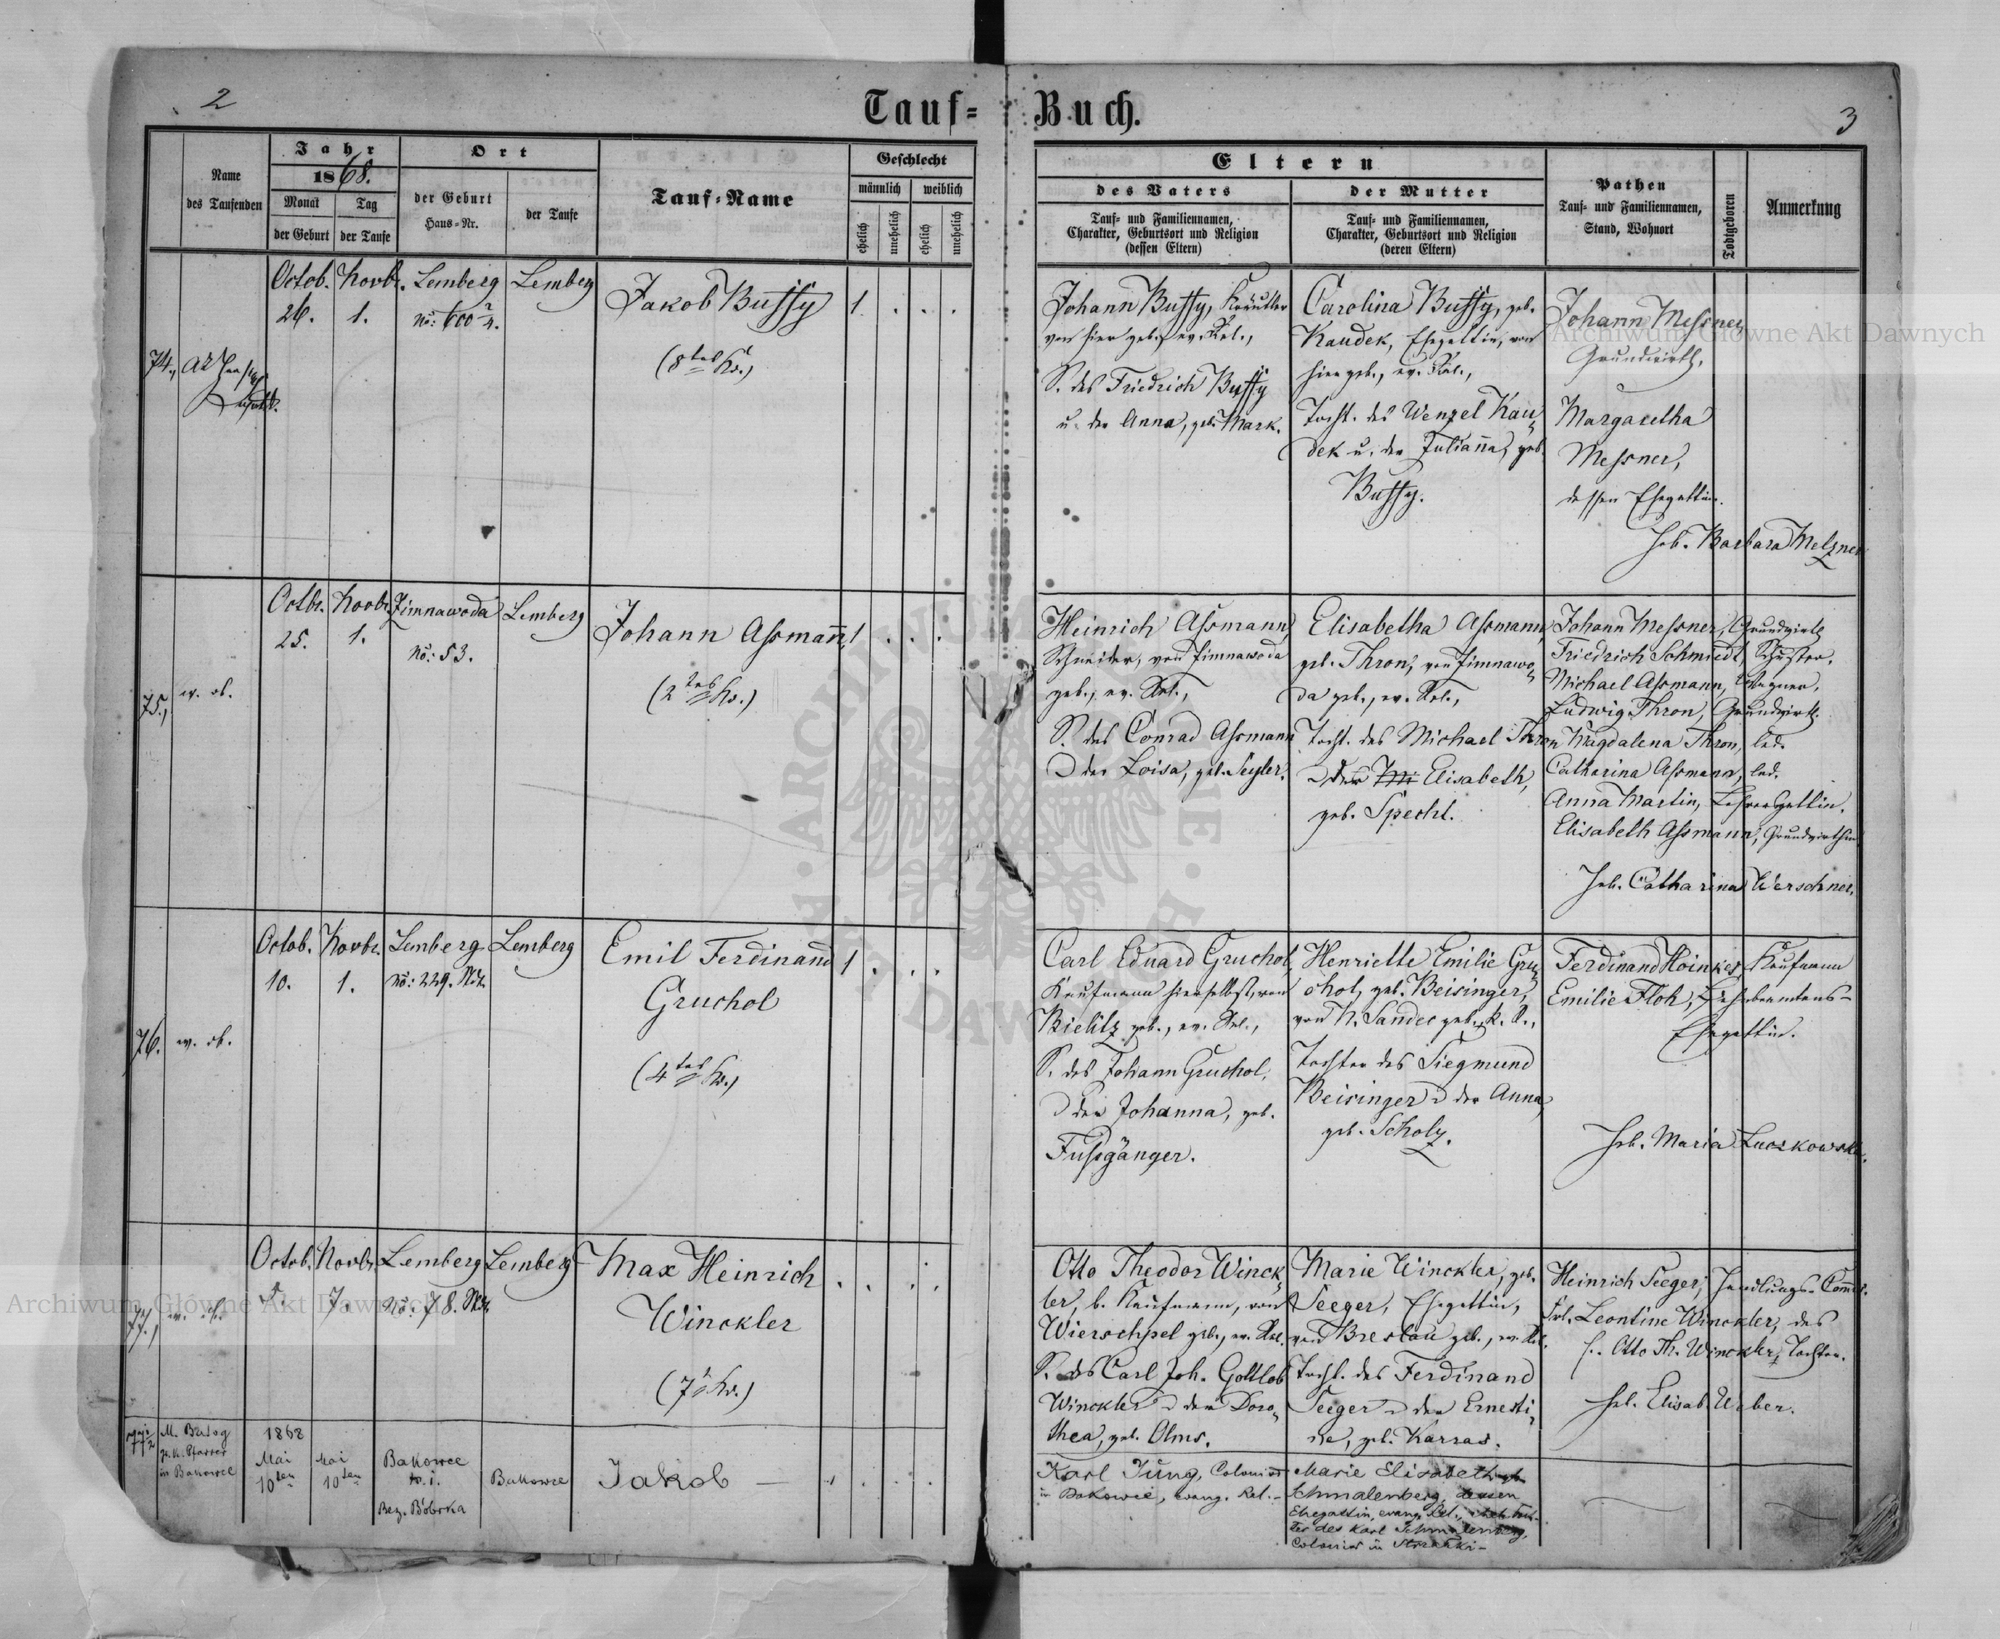 2
Tauf-Buch.
3
Name
des Taufenden
Jahr
1868.
Monat
der Geburt
Tag
der Taufe
Ort
der Geburt
Haus-Nr.
der Taufe
Tauf-Name
Geschlecht
männlich
weiblich
ehelich
unehelich
ehelich
unehelich
Eltern
des Vaters
Tauf- und Familiennamen,
Charakter, Geburtsort und Religion
(dessen Eltern)
der Mutter
Tauf- und Familiennamen,
Charakter, Geburtsort und Religion
(deren Eltern)
Pathen
Tauf- und Familiennamen,
Stand, Wohnort
Todtgeboren
Anmerkung
74.,
Octob.
26.
Novbr.
1.
Lemberg
No: 600 2/4.
Lemberg
Jakob Buffy
(8tes Kd.)
1
Johann Buffy,
von hier geb., ev. Rel.,
S. des Friedrich Buffy
u. der Anna, geb. Mark.
Carolina Buffy, geb.
Kaudek, Ehegattin, von
hier geb., ev. Rel.,
Tocht. des Wenzel Kau-
dek u. der Julianna, geb.
Buffy.
Johann Messner,
Grundwirth.
Margaretha
Messner,
dessen Ehegattin.
Heb. Barbara Melzner
75.,
w. ob.
Octbr.
25.
Novbr.
1.
Zimnawoda
No: 53.
Lemberg
Johann Assmann,
(2tes Kd.)
1
Heinrich Assmann,
Schneider, von Zimnawoda
geb., ev. Rel.,
S. des Conrad Assmann
u. der Loisa, geb. Seyler.
Elisabetha Assmann
geb. Thron, von Zimnawo-
da geb., ev. Rel.,
Tocht. des Michael Thron
u. der Elisabeth,
geb. Specht.
Johann Messner, Grundwirth
Friedrich Schmiedt, Schuster.
Michael Assmann, Wagner.
Ludwig Thron, Grundwirth.
Magdalena Thron, led.
Catharina Assmann, led.
Anna Martin, Lehrersgattin.
Elisabeth Assmann, Grundwirthin
Heb. Catharina Werschner.
76.
w. ob.
Octob.
10.
Novbr.
1.
Lemberg
No: 229. St.
Lemberg
Emil Ferdinand
Gruchol
(4tes Kd.)
1
Carl Eduard Gruchol,
Kaufmann hierselbst, von
Bielitz geb., ev. Rel.,
S. des Johann Gruchol,
u. der Johanna, geb.
Fussgänger.
Henriette Emilie Gru-
chol, geb. Beisinger,
von N. Sandec geb., k. R.,
Tochter des Siegmund
Beisinger u. der Anna,
geb. Scholz.
Ferdinand Hoinkes, Kaufmann
Emilie Floh,
Ehegattin.
Heb. Maria Luczkowska.
77.,
w. ob.
Octob.
Novbr.
7.
Lemberg
No: 78. St.
Lemberg
Max Heinrich
Winckler
(7. Kd.)
Otto Theodor Winck-
ler, b. Kaufmann, von
Wierschpel geb., ev. Rel.
S. des Carl Joh. Gottlob
Winckler u. der Doro-
thea, geb. Olms.
Marie Winckler, geb.
Seeger, Ehegattin,
von Breslau geb., ev. Rel.
Tocht. des Ferdinand
Seeger u. der Ernesti-
ne, geb. Karras.
Heinrich Seeger, Handlungs-Commis.
Frl. Leontine Winckler, des
H. Otto Th. Winckler, Tochter.
Heb. Elisab. Weber.
77 1/2
Pfarrer
in Bakowce
1868
Mai
10ten
Mai
10ten
Bakowce
Bez. Bóbrka
Bakowce
Jakob —
Karl Jung, Colonist
in Bakowce, evang. Rel. -
Marie Elisabeth geb.
Schmalenberg, dessen
Ehegattin, evang. Rel.,
ter des Karl Schmalenberg,
Colonist in
Archiwum Główne Akt Dawnych
Archiwum Główne Akt Dawnych
ARCHIWUM GŁÓWNE AKT DAWNYCH